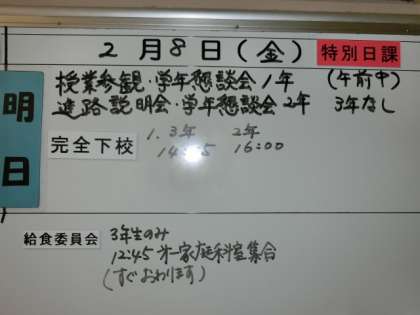 2月8日(金) 特別日課
明日
授業参観・学年懇談会 1年 (午前中)
進路説明会・学年懇談会 2年 3年なし
完全下校
1.3年 2年
14: 5 16:00
給食委員会
3年生のみ
12:45 第一家庭科室集合
(すぐおわります)